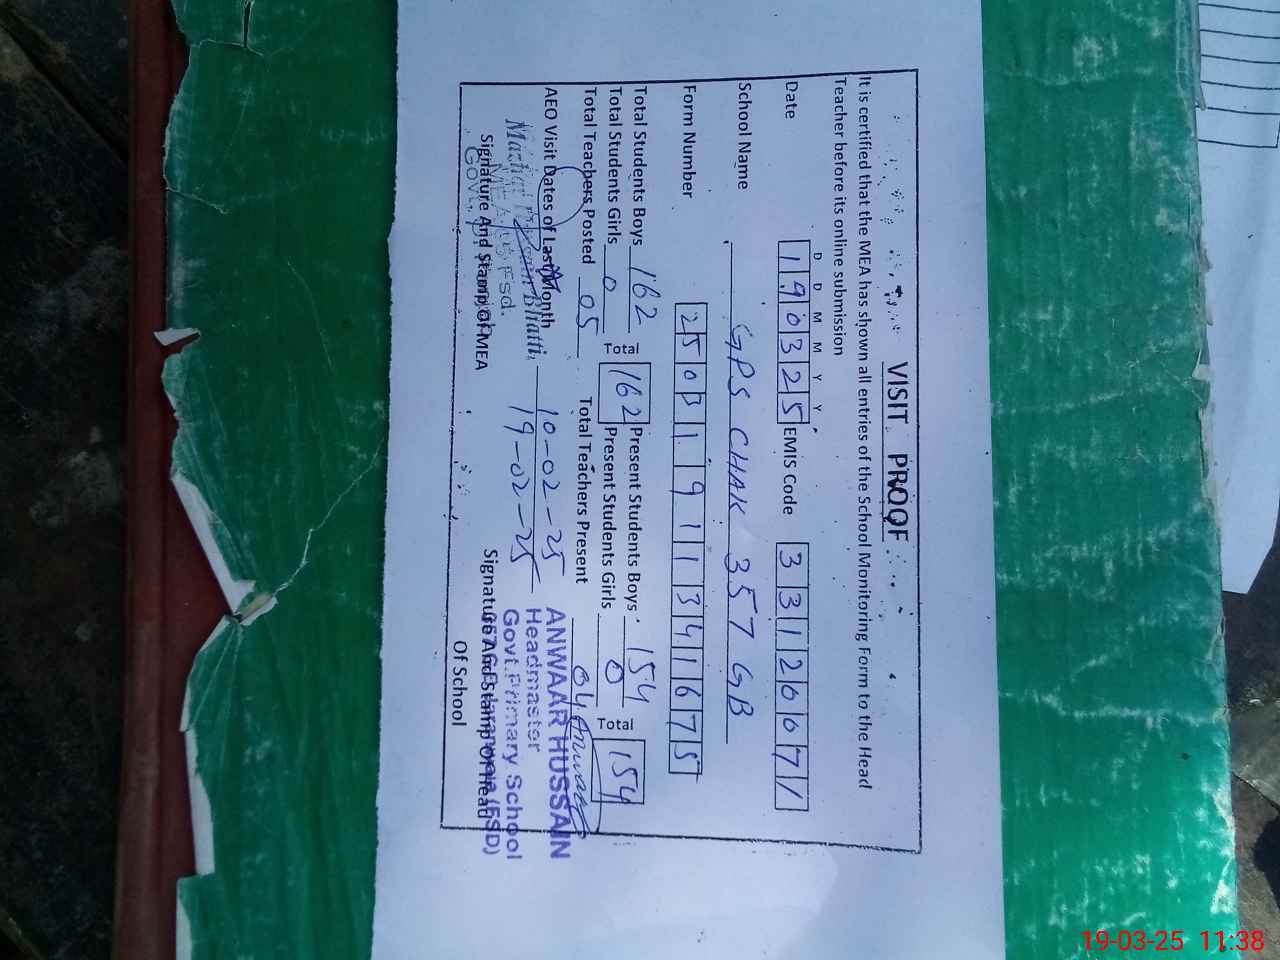 VISIT PROOF
It is certified that the MEA has shown all entries of the School Monitoring Form to the Head
Teacher before its online submission
D D M M Y Y
Date 190325 EMIS Code 33120071
School Name GPS CHAK 357 GB
Form Number 25031911341675
Total Students Boys 162 Total 162 Present Students Boys 154 Total 154
Total Students Girls 0 Present Students Girls 0
Total Teachers Posted 05 Total Teachers Present 04
AEO Visit Dates of Last Month 10-02-25
19-02-25
Bhatti
Fsd.
Signature And Stamp Of MEA
ANWAAR HUSSAIN
Headmaster
Govt. Primary School
(FSD)
Signature And Stamp Of Head
Of School
19-03-25 11:38